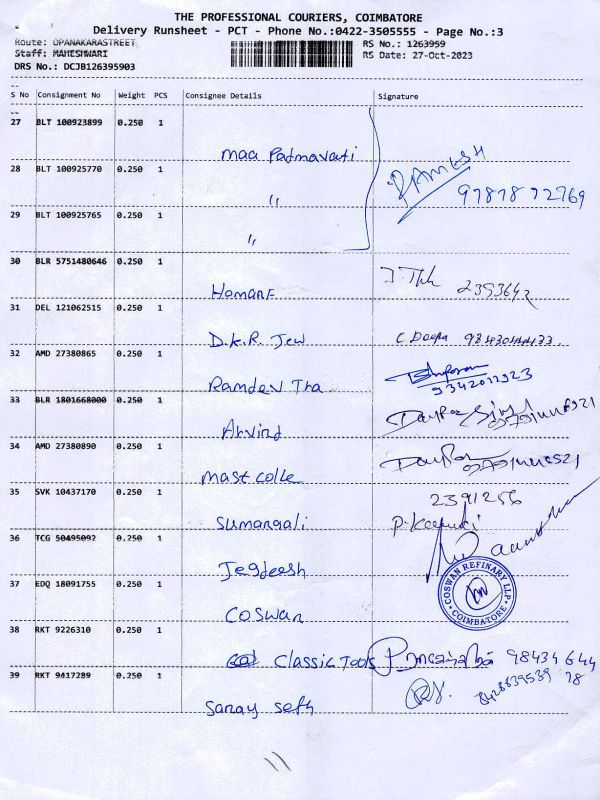 THE PROFESSIONAL COURIERS, COIMBATORE
Delivery Runsheet - PCT - Phone No.:0422-3505555 - Page No.:3
Route: OPANAKARASTREET RS No.: 1263959
Staff: MAHESHWARI RS Date: 27-Oct-2023
DRS No.: DCJB126395903
S No Consignment No Weight PCS Consignee Details Signature
27 BLT 100923899 0.250 1
maa Padmavati
28 BLT 100925770 0.250 1 RAMESH
" 9787872769
29 BLT 100925765 0.250 1
"
30 BLR 5751480646 0.250 1
2393642
31 DEL 121062515 0.250 1
D.K.R. Jew C. Deepa
32 AMD 27380865 0.250 1
Ramdev Tha 9342012923
33 BLR 1801668000 0.250 1
Arvind
34 AMD 27380890 0.250 1
mast colle
35 SVK 10437170 0.250 1 2391256
Sumangali
36 TCG 50495092 0.250 1
Jegdeesh
37 EDQ 18091755 0.250 1 COSWAN REFINARY LLP COIMBATORE
COSWAN
38 RKT 9226310 0.250 1
Classic Tools 98434 644
39 RKT 9417289 0.250 1 78
Sanay Seth